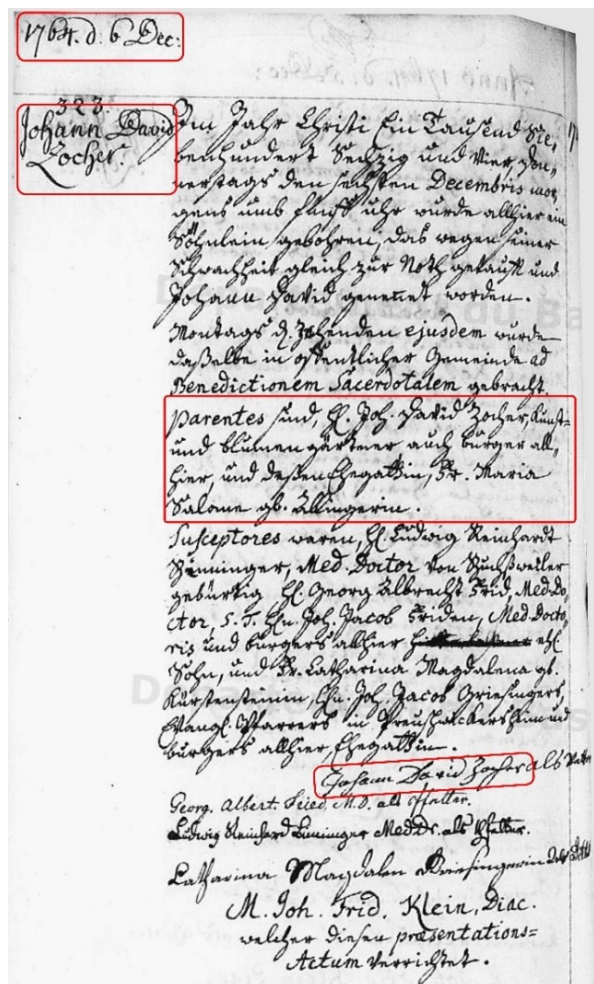 1764. d. 6 Dec:
323.
Johann David
Zocher.
Im Jahr Christi Ein Tausend Sie-
benhundert Sechzig und Vier, Don-
nerstags den sechsten Decembris mor-
gens umb fünff uhr wurde allhier ein
Söhnlein gebohren, das wegen seiner
Schwachheit gleich zur Noth getaufft und
Johann David genennet worden.
Montags d. Zehenden ejusdem wurde
daßelbe in offentlicher Gemeinde ad
Benedictionem Sacerdotalem gebracht.
Parentes sind, H. Joh. David Zocher, Kunst-
und blumengärtner auch burger all-
hier, und deßen Ehegattin, Fr. Maria
Salome gb. Allingerin.
Susceptores waren, H. Ludwig Reinhardt
Med. Doctor von Buchßweiler
gebürtig H. Georg Albrecht Frid, Med. Do-
ctor, S. T. Hn. Joh. Jacob Friden, Med. Docto-
ris und burgers allhier ehl.
Sohn, und Fr. Catharina Magdalena gb.
Kürstensteinin, Hn. Joh. Jacob Griesingers,
Evangl. Pfarrers in und
burgers allhier, Ehegattin.
Johann David Zocher als Vatter
Georg. Albert. Fried. M.D. als Pfetter.
Ludwig Reinhard Med. Dr. als Pfetter.
Catharina Magdalen Griesingerin als
M. Joh. Frid. Klein, Diac.
welcher diesen præsentations-
Actum verrichtet.